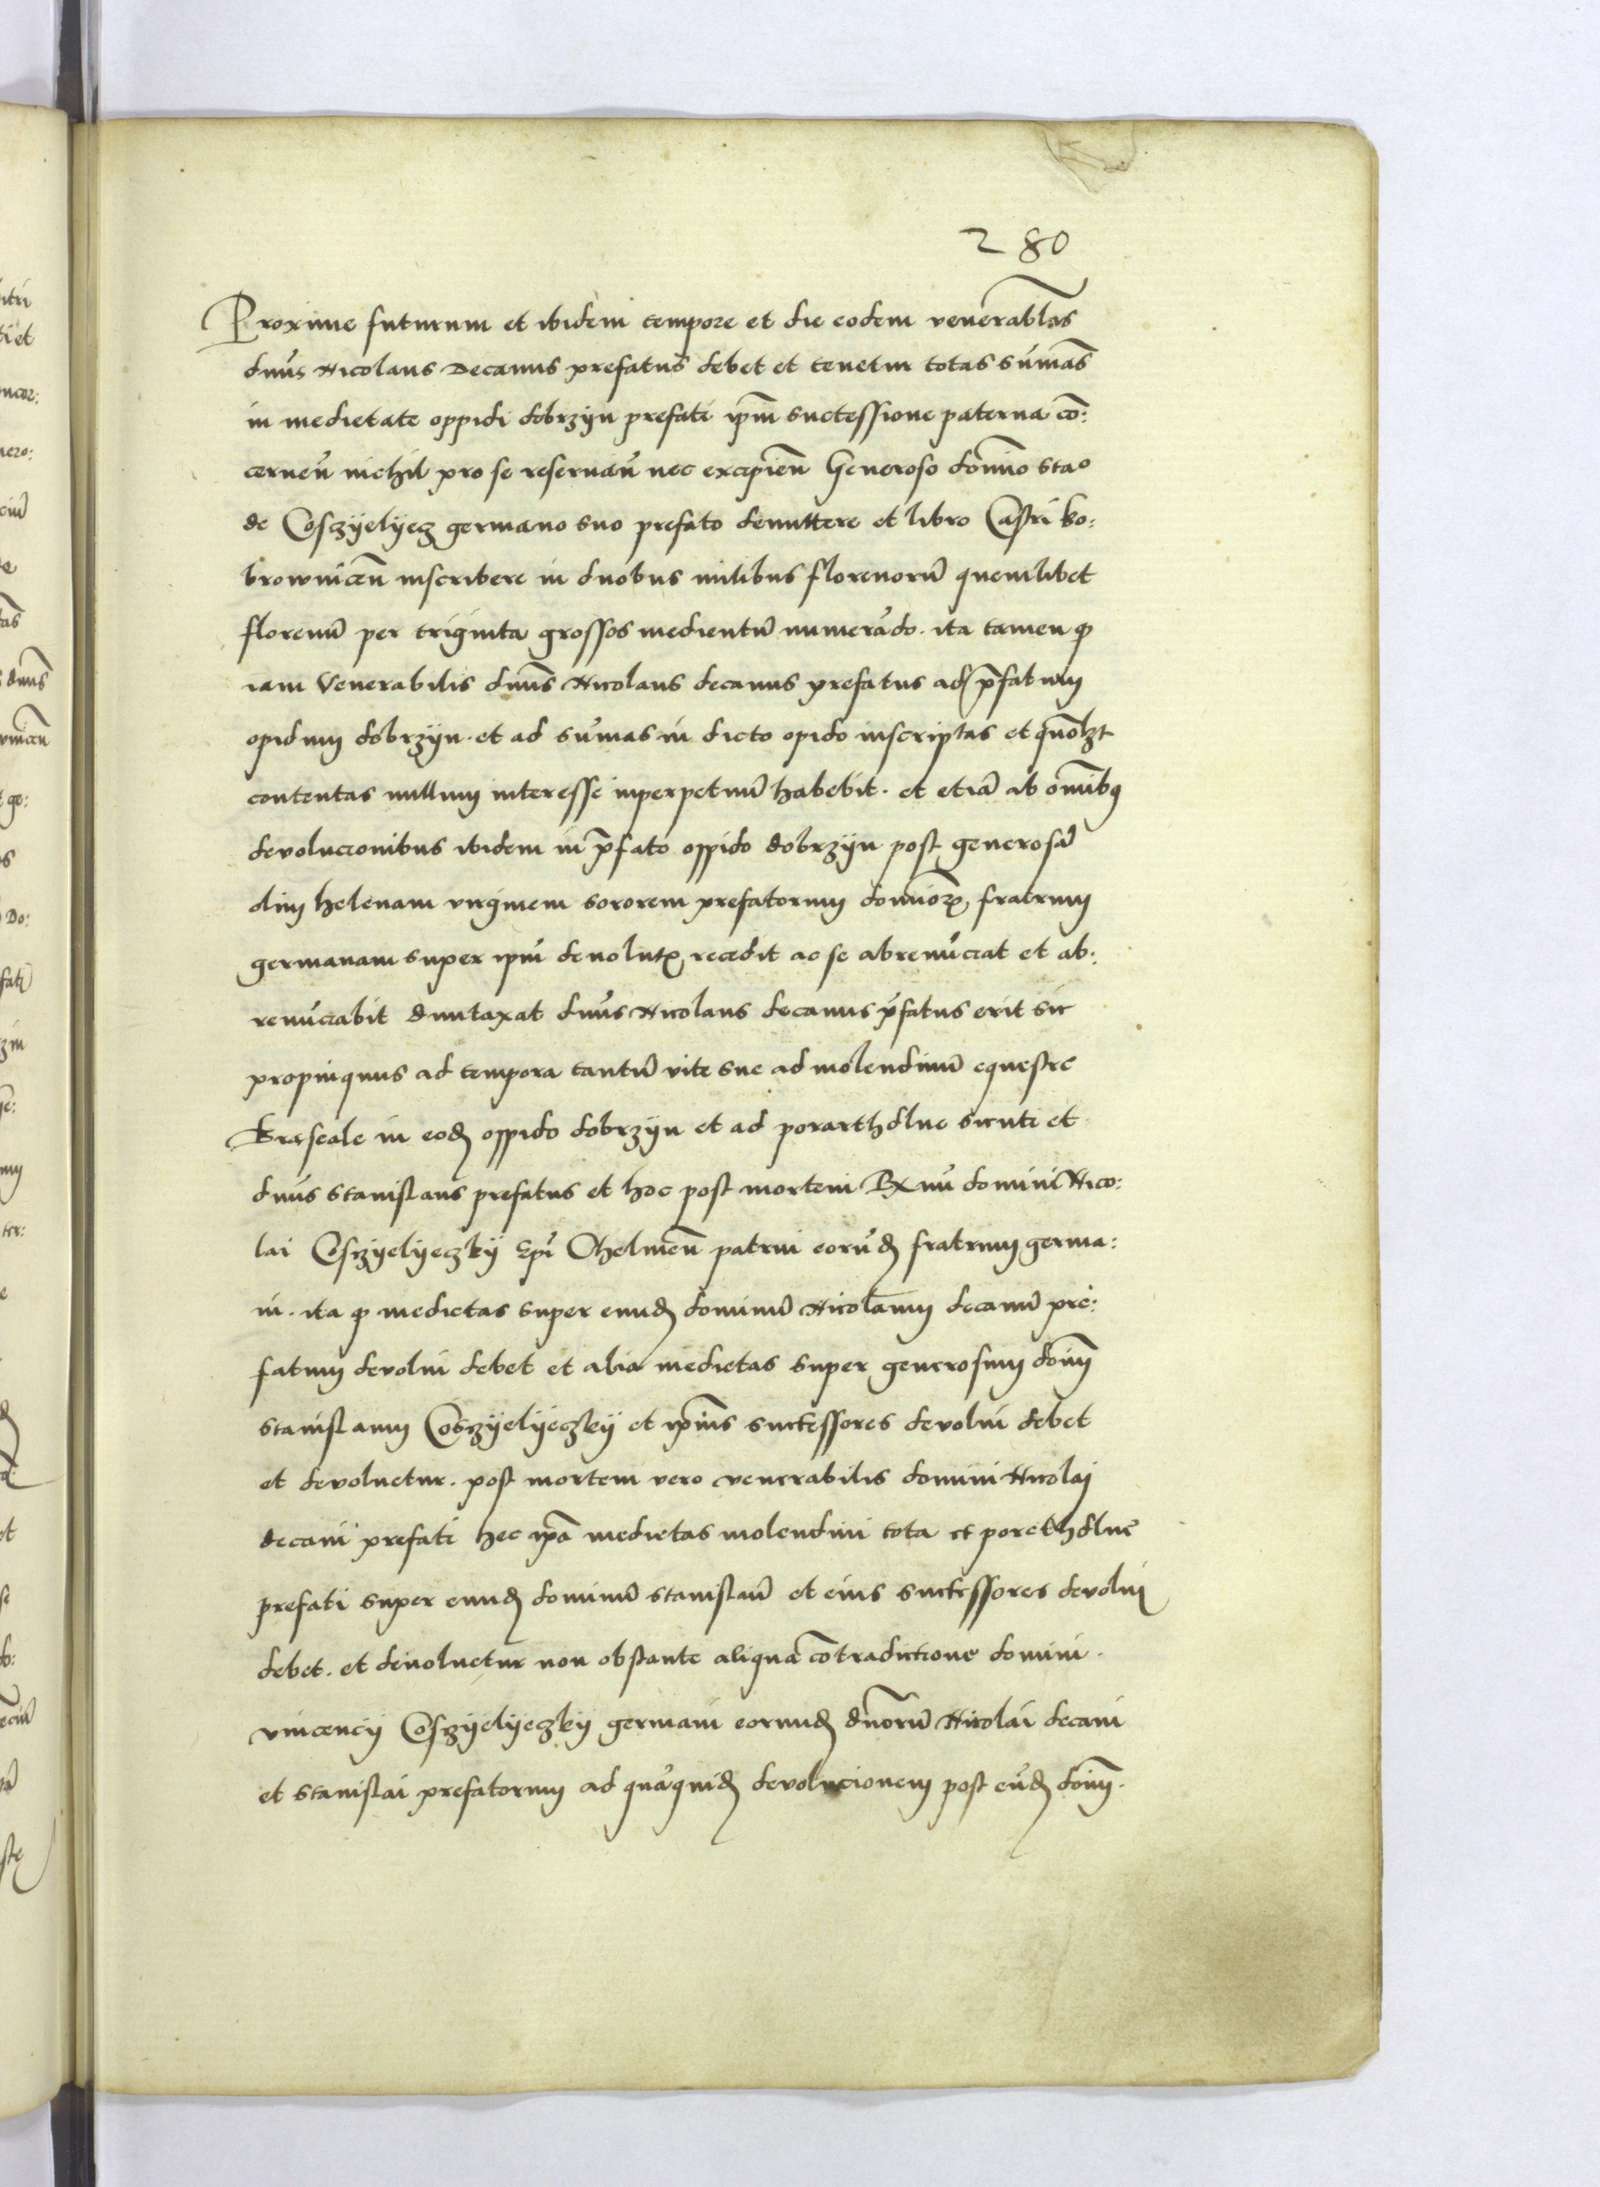 280
Proxime futurum et ibidem tempore et die eodem venerabilis
dn̄us Nicolaus Decanus prefatus debet et tenetur totas sūmas
in medietate oppidi dobrzyn prefati ip̄m successione paterna cō:
cernen̄ nichil pro se reservan̄ nec excipien̄ Generoso domino Stao
de Cosczyelyecz germano suo prefato demittere et libro Castri bo:
brownicen̄ inscribere in duobus milibus florenorū quemlibet
florenū per triginta grossos medientū numerādo. ita tamen ꝙ
iam Venerabilis dn̄us Nicolaus decanus prefatus ad p̄fatum
opidum dobrzyn. et ad sūmas in dicto opido inscriptas et quōlzt
contentas nullum interesse inperpetuū habebit. et etiā ab omībus
devolucionibus ibidem in p̄fato oppido dobrzyn post generosā
olim helenam virginem sororem prefatorum dominoꝝ fratrum
germanam super ipm̄ devolutꝭ recedit ac se abrenūciat et ab:
renūciabit duntaxat dn̄us Nicolaus decanus p̄fatus erit sic
propinquus ad tempora tantū vite sue ad molendinū equestre
Braseale in eodꝫ oppido dobrzyn et ad porarthdlne sicuti et
dn̄us Stanislaus prefatus et hoc post mortem Rx̄mi domini Nico:
lai Cosczyelyeczky Ep̄i Chelmen̄ patrui eorūdꝫ fratrum germa:
ni. ita ꝙ medietas super eundꝫ dominū Nicolaum decanū pre:
fatum devolui debet et alia medietas super generosum domī
Stanislaum Cosczyelyeczky et ip̄ius successores devolui debet
et devoluetur. post mortem vero venerabilis domini Nicolai
decani prefati hec ip̄a medietas molendini tota et porethdlne
prefati super eundꝫ dominū Stanislaū et eius successores devolui
debet. et devoluetur non obstante aliqua cōtradictione domini.
vincencij Cosczyelyeczky germani eorundꝫ dn̄orū Nicolai decani
et Stanislai prefatorum ad quāquidꝫ devolucionem post eūdꝫ domī.